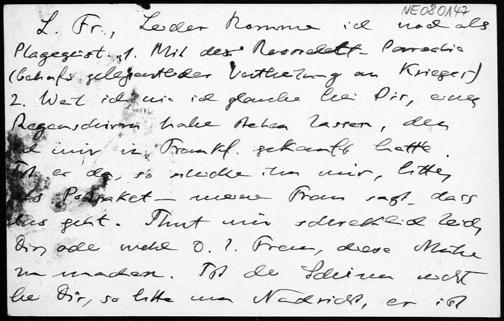 NE080147
L. Fr., Leider komme ich noch als
Plagegeist. 1. Mit der Roosevelt-Parodie
(behufs gelegentlicher Verteilung an Krieger)
2. Weil ich, wie ich glaube bei Dir, einen
Regenschirm habe stehen lassen, den
ich mir in Frankf. gekauft hatte.
Ist er da, so schicke ihn mir, bitte,
als Postpaket – meine Frau sagt, dass
das geht. Thut mir schrecklich leid,
Dir, oder wohl D. l. Frau, diese Mühe
zu machen. Ist der Schirm nicht
bei Dir, so bitte um Nachricht, er ist